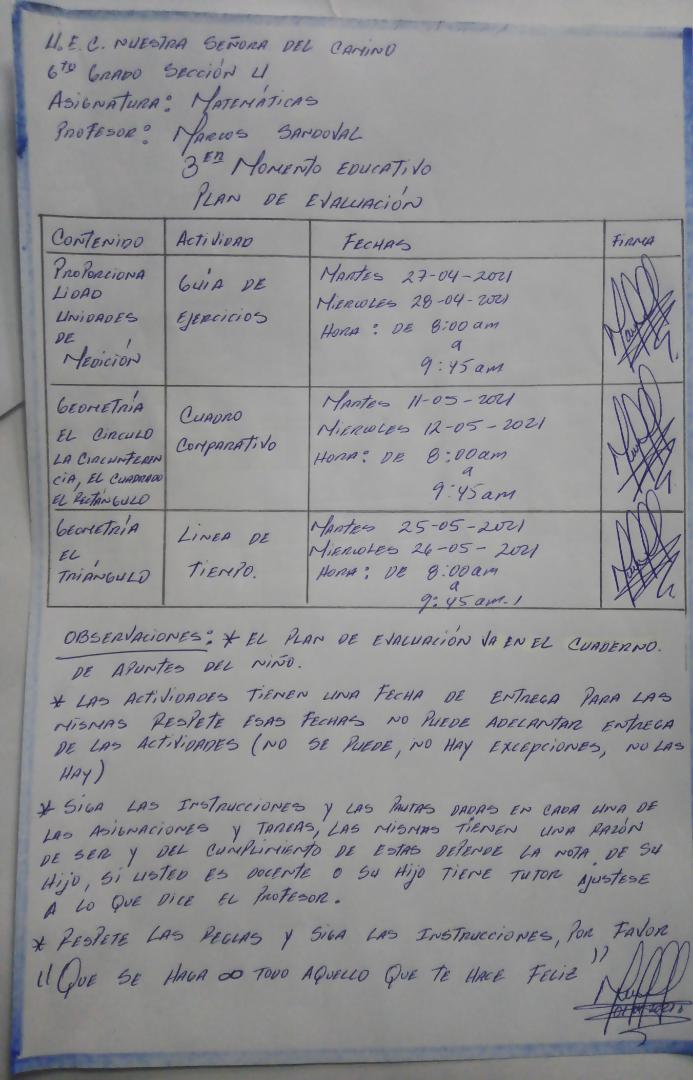 U.E.C. NUESTRA SEÑORA DEL CAMINO
6to GRADO SECCIÓN U
ASIGNATURA: MATEMÁTICAS
PROFESOR: MARCOS SANDOVAL
3ER MOMENTO EDUCATIVO
PLAN DE EVALUACIÓN
CONTENIDO ACTIVIDAD FECHAS FIRMA
PROPORCIONA
LIDAD
UNIDADES
DE
MEDICIÓN
GUÍA DE
EJERCICIOS
MARTES 27-04-2021
MIERCOLES 28-04-2021
HORA: DE 8:00am
a
9:45am
GEOMETRÍA
EL CIRCULO
LA CIRCUNFEREN
CIA, EL CUADRADO
EL RECTÁNGULO
CUADRO
COMPARATIVO
MARTES 11-05-2021
MIERCOLES 12-05-2021
HORA: DE 8:00am
a
9:45am
GEOMETRÍA
EL
TRIÁNGULO
LINEA DE
TIEMPO.
MARTES 25-05-2021
MIERCOLES 26-05-2021
HORA: DE 8:00am
a
9:45am.
OBSERVACIONES: * EL PLAN DE EVALUACIÓN VA EN EL CUADERNO.
DE APUNTES DEL NIÑO.
* LAS ACTIVIDADES TIENEN UNA FECHA DE ENTREGA PARA LAS
MISMAS RESPETE ESAS FECHAS NO PUEDE ADELANTAR ENTREGA
DE LAS ACTIVIDADES (NO SE PUEDE, NO HAY EXCEPCIONES, NO LAS
HAY)
* SIGA LAS INSTRUCCIONES Y LAS PAUTAS DADAS EN CADA UNA DE
LAS ASIGNACIONES Y TAREAS, LAS MISMAS TIENEN UNA RAZÓN
DE SER Y DEL CUMPLIMIENTO DE ESTAS DEPENDE LA NOTA DE SU
HIJO, SI USTED ES DOCENTE O SU HIJO TIENE TUTOR AJUSTESE
A LO QUE DICE EL PROFESOR.
* RESPETE LAS REGLAS Y SIGA LAS INSTRUCCIONES, POR FAVOR
"QUE SE HAGA ∞ TODO AQUELLO QUE TE HACE FELIZ"